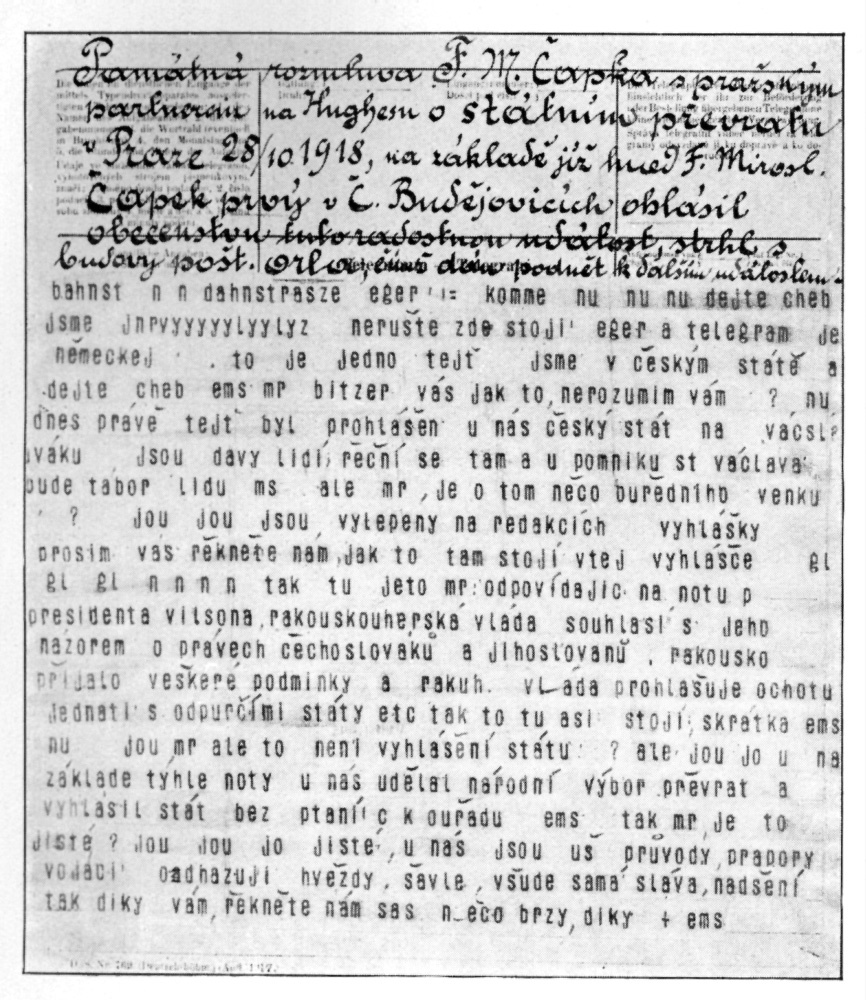 Památná rozmluva F. M. Čapka s pražským
partnerem na Hughesu o státním převratu
v Praze 28/10.1918, na základě již hned F. Mirosl.
Čapek prvý v Č. Budějovicích ohlásil
obecenstvu tuto radostnou událost, strhl s
budovy pošt. orla, čímž dán podnět k dalším událostem.
bahnst n n dahnstrasze eger := komme nu nu nu dejte cheb
jsme jnrvyyyyylyylyz nerušte zde stojí eger a telegram je
německej . to je jedno tejť jsme v českým státě a
dejte cheb ems mr bitzer vás jak to, nerozumim vám ? nu
dnes právě tejť byl prohlášen u nás český stát na václa
váku jsou davy lidí, řeční se tam a u pomniku st václava
bude tabor lidu ms ale mr, je o tom něco buředního venku
? jou jou jsou vylepeny na redakcích vyhlášky
prosim vás řekněte nám, jak to tam stojí vtej vyhlášce gl
gl gl n n n n tak tu jeto mr: odpovídajíc na notu p
presidenta vilsona, rakouskouherská vláda souhlasí s jeho
názorem o právech čechoslováků a jihoslovanů . rakousko
přijalo veškeré podminky a rakuh. vláda prohlašuje ochotu
jednati s odpurčími státy etc tak to tu asi stojí, skrátka ems
nu jou mr ale to není vyhlášení státu ? ale jou jo u na
základe týhle noty u nás udělal národní výbor převrat a
vyhlásil stát bez ptaní c k ouřadu ems tak mr, je to
jisté ? jou jou jo jisté, u nás jsou uš průvody, prapory
vojáci oadhazují hvěždy, šavle, všude samá sláva, nadšení
tak díky vám, řekněte nám sas něco brzy, díky + ems